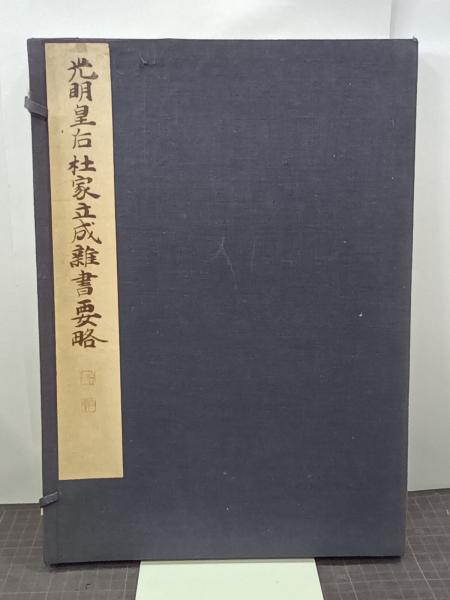 光明皇后 杜家立成雜書要略